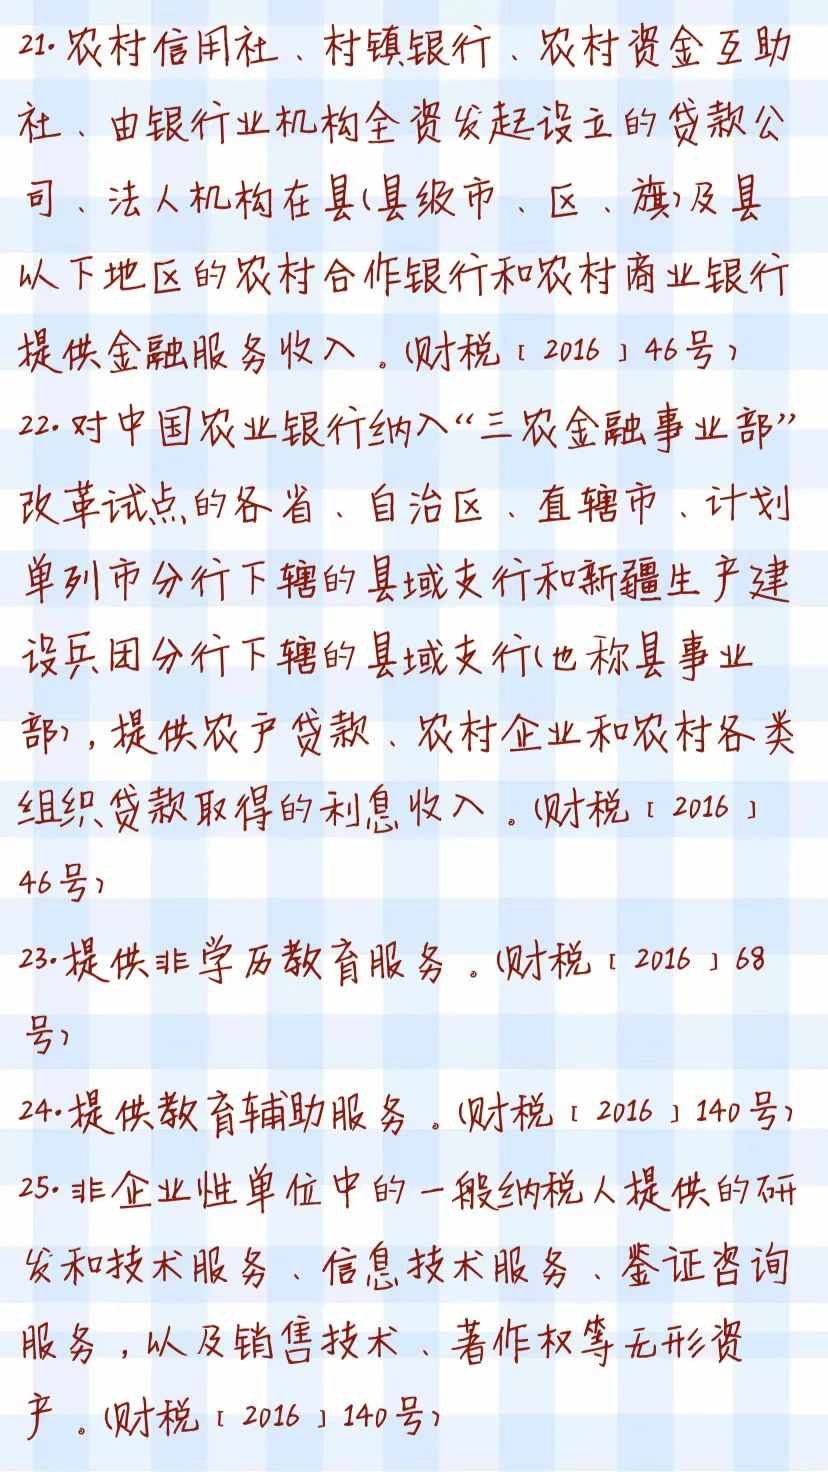 21.农村信用社、村镇银行、农村资金互助
社、由银行业机构全资发起设立的贷款公
司、法人机构在县(县级市、区、旗)及县
以下地区的农村合作银行和农村商业银行
提供金融服务收入。(财税[2016]46号)
22.对中国农业银行纳入“三农金融事业部”
改革试点的各省、自治区、直辖市、计划
单列市分行下辖的县域支行和新疆生产建
设兵团分行下辖的县域支行(也称县事业
部),提供农户贷款、农村企业和农村各类
组织贷款取得的利息收入。(财税[2016]
46号)
23.提供非学历教育服务。(财税[2016]68
号)
24.提供教育辅助服务。(财税[2016]140号)
25.非企业性单位中的一般纳税人提供的研
发和技术服务、信息技术服务、鉴证咨询
服务,以及销售技术、著作权等无形资
产。(财税[2016]140号)